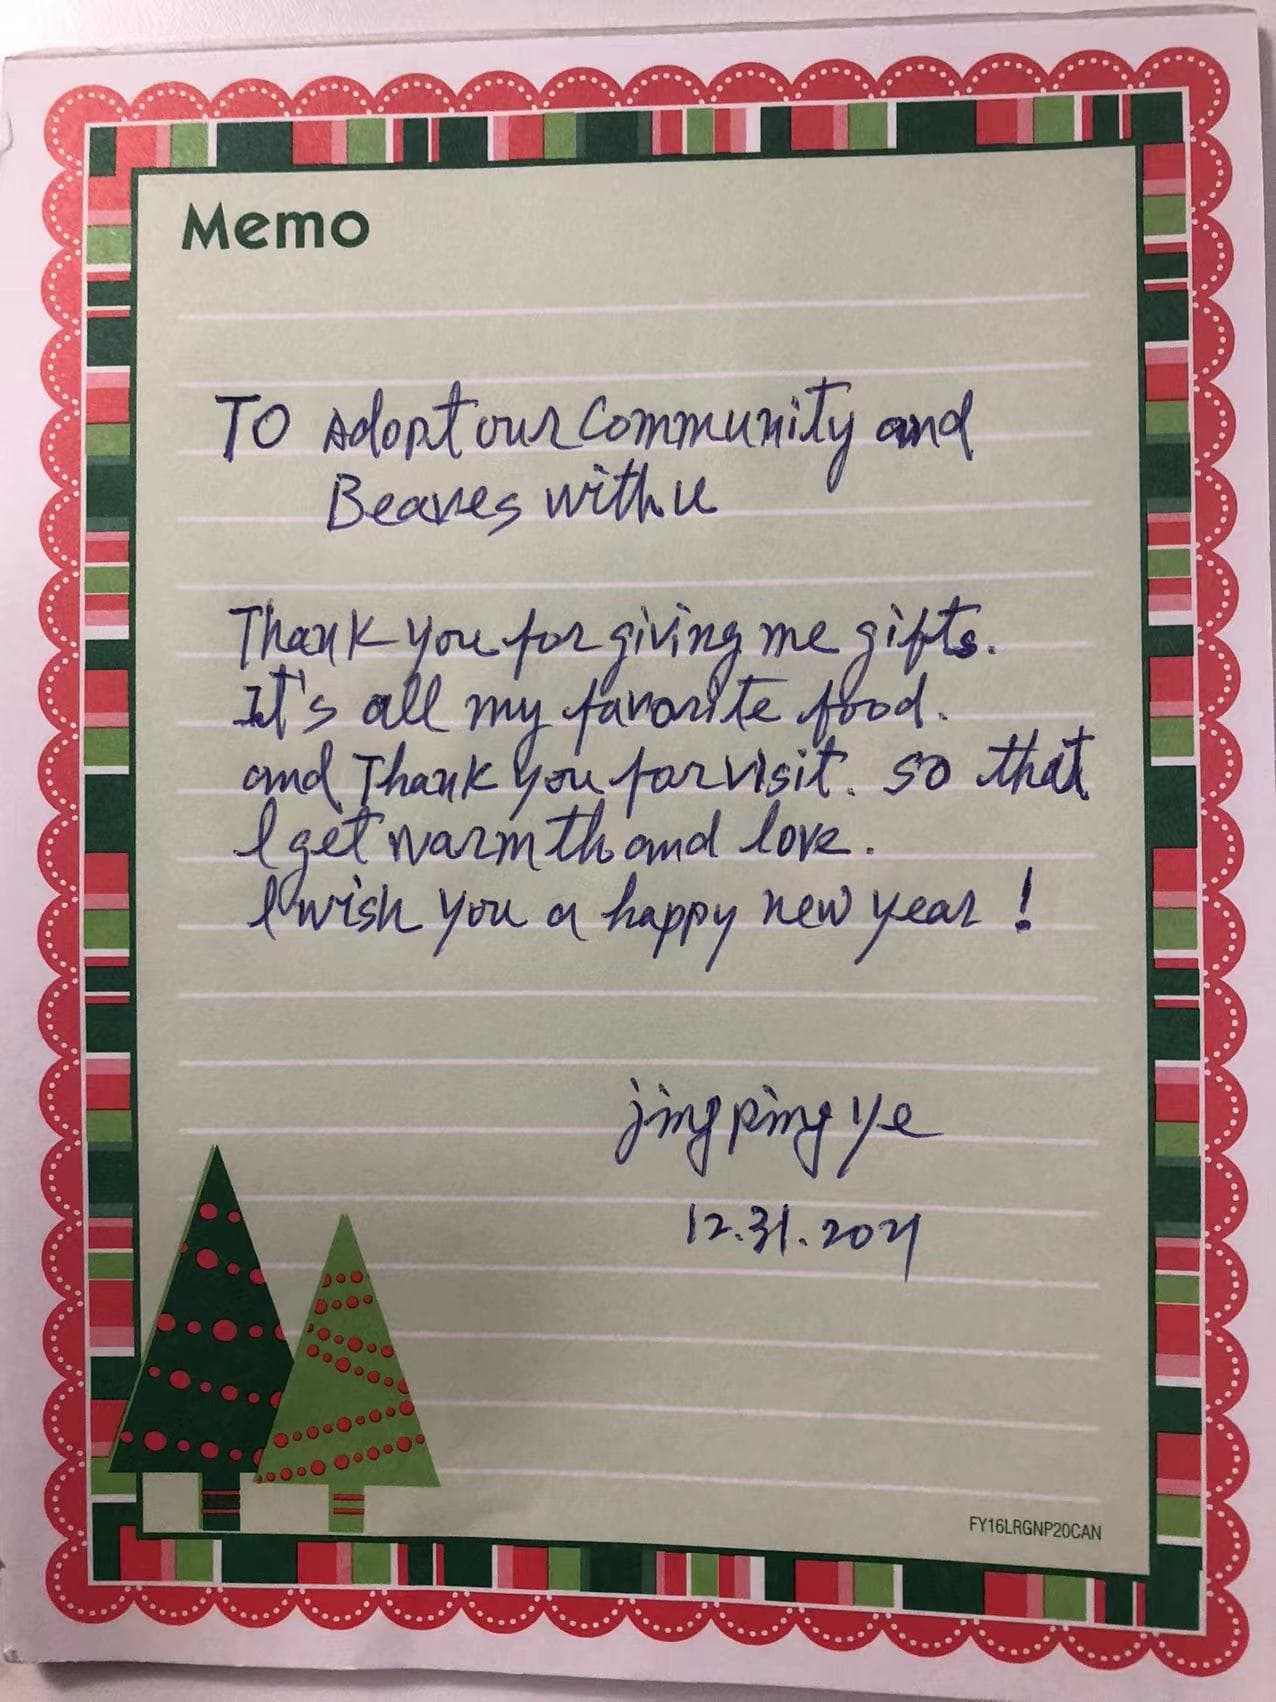 Memo
TO Adopt our Community and
Beaves with u
Thank you for giving me gifts.
It's all my favorite food.
and Thank you for visit. so that
I get warmth and love.
I wish you a happy new year !
jingping ye
12.31.2021
FY16LRGNP20CAN